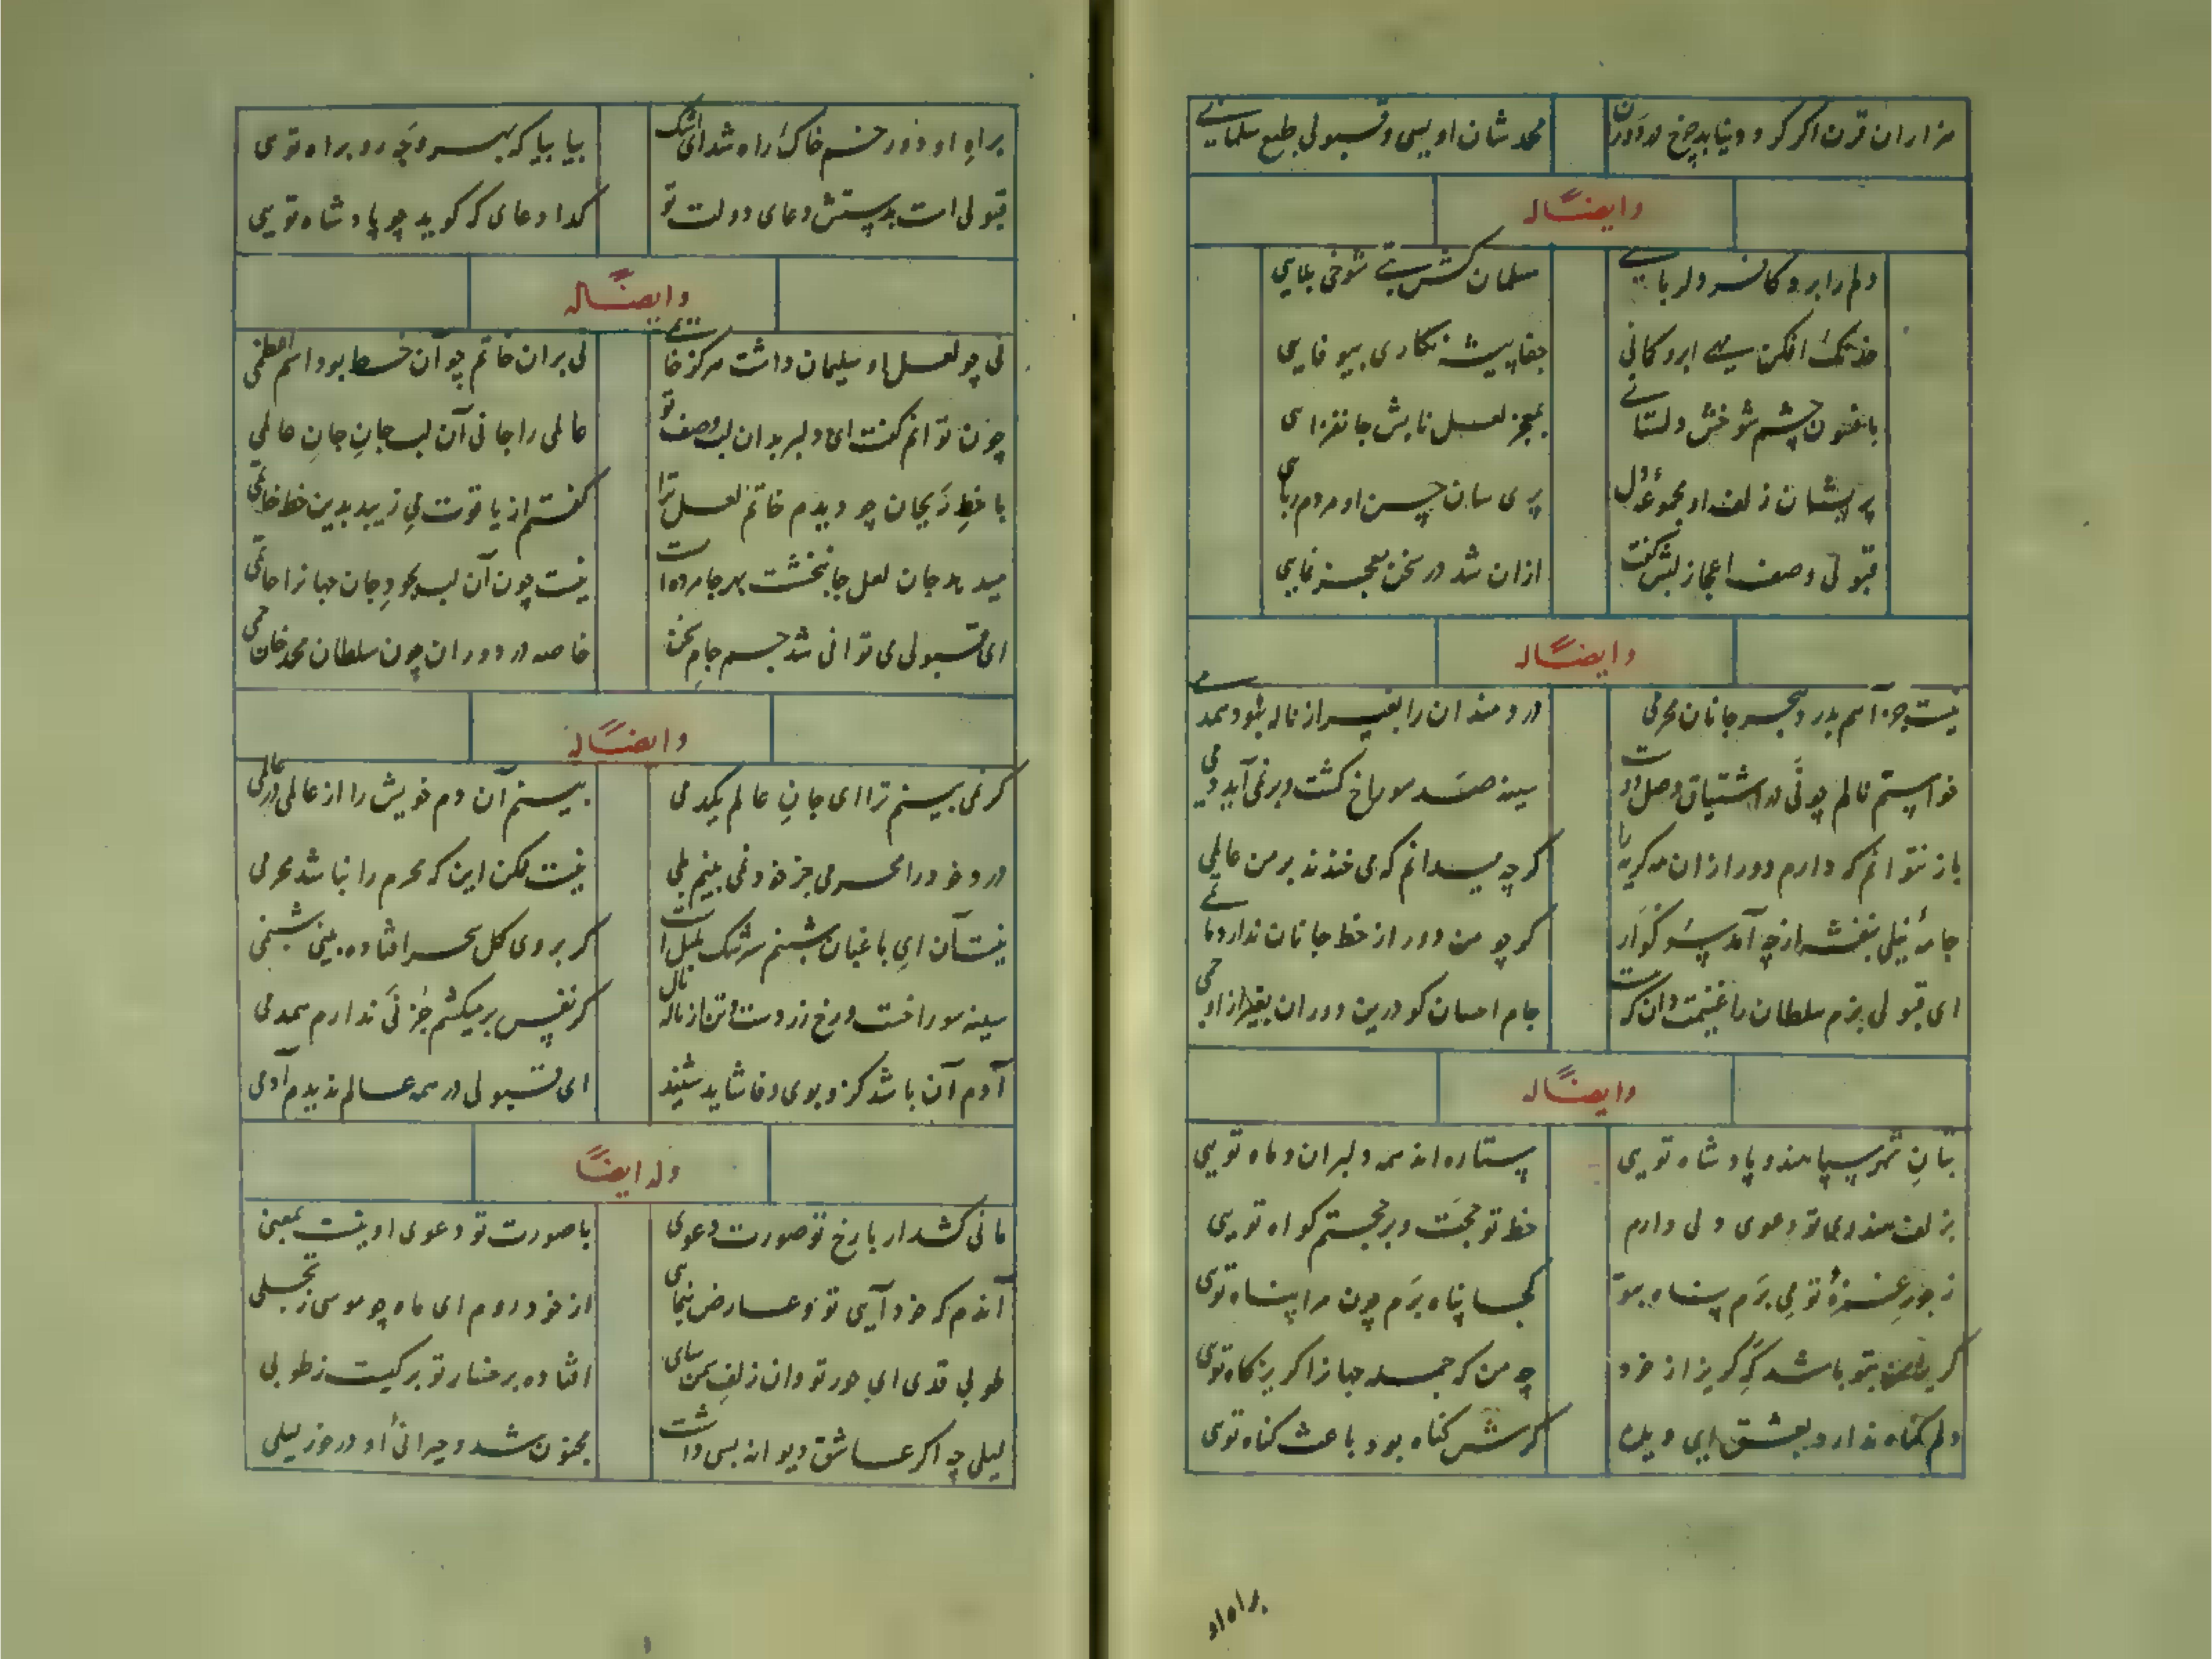 هزاران قرن اگر گردد نیابد چرخ در دوران محمد شان اویسی و قبولی طبع سلمانی
وایضًا له
دلم را برد کافر دلربایی مسلمان کش بتی شوخی بلایی
خدنگ افکن سهی ابرو کمانی جفا پیشه نگاری بیوفایی
بافسون چشم شوخش دلستانی بمعجز لعل نابش جانفزایی
پریشان زلف او مجموعهٔ دل پری سان حسن او مردم ربایی
قبولی وصف اعجاز لبش گفت ازان شد در سخن معجز نمایی
وایضًا له
نیست جز آهم بدرد هجر جانان محرمی دردمندان را بغیر از ناله نبود همدمی
خواستم نالم چو نی در اشتیاق وصل دوست سینه صد سوراخ گشت و بر نمی آید دمی
باز نتوانم که دارم دور از ان مه گریه را گرچه میدانم که می خندند بر من عالمی
جامهٔ نیلی بنفشه از چه آمد سوگوار گر چو من دور از خط جانان ندارد ماتمی
ای قبولی بزم سلطان را غنیمت دان که نیست جام احسان کو درین دوران بغیر از او جمی
وایضًا له
بتان شهر سپاهند و پادشاه تویی ستاره اند همه دلبران و ماه تویی
بزلف هندوی تو دعوی دلی دارم خط تو حجت و بر حجتم گواه تویی
ز جور غمزهٔ تو می برم پناه بتو کجا پناه برم چون مرا پناه تویی
گریختن بتو باشد گر گریزم از خود چه من که جمله جهانرا گریزگاه تویی
دلم گناه ندارد بعشق ای دیده گرش گناه بود باعث گناه تویی
براه او
براه او ز دو چشم خاک راه شد ای اشک بیا بیا که بهر سو چو رو براه تویی
قبولی است بدستش دعای دولت تو گدا دعای که گوید چو پادشاه تویی
وایضًا له
نی چو لعل او سلیمان داشت هرگز خاتمی نی بران خاتم چو آن خط بود اسم اعظمی
چون توانم گفت ای دلبر بدان لب وصف تو عالمی را جانی آن لب جانِ جانِ عالمی
با خطِ ریحان چو دیدم خاتم لعل ترا گفتم از یاقوت می زیبد بدین خط خاتمی
میدهد جان لعل جانبخشت بهر جا مرده است نیست چون آن لب بجودِ جان جهانرا حاتمی
ای قبولی می توانی شد جم جامِ سخن خاصه در دوران چون سلطان محمد خان جمی
وایضًا له
گر نمی بینم ترا ای جانِ عالم یکدمی بینم آن دم خویش را از عالمی در عالمی
درد خود را محرمی جز خود نمی بینم بلی نیست لکن این که محرم را نباشد محرمی
نیست آن ای باغبان شبنم سرشک بلبل است گر بروی گل سحر افتاده بینی شبنمی
سینه سوراخست و رخ زردست و تن از ناله نال گر نفس بر میکشم جز نی ندارم همدمی
آدم آن باشد کزو بوی وفا شاید شنید ای قبولی در همه عالم ندیدم آدمی
وله ایضًا
مانی کشد ار با رخ تو صورت دعوی با صورت تو دعوی او نیست بمعنی
آندم که خود آیی تو و عارض بنمایی از خود روم ای ماه چو موسی ز تجلی
طوبی قدی ای حور تو و ان زلف سمن سای افتاده برخسار تو برگیست ز طوبی
لیلی چه اگر عاشق دیوانه بسی داشت مجنون شد و حیرانی او در خور لیلی